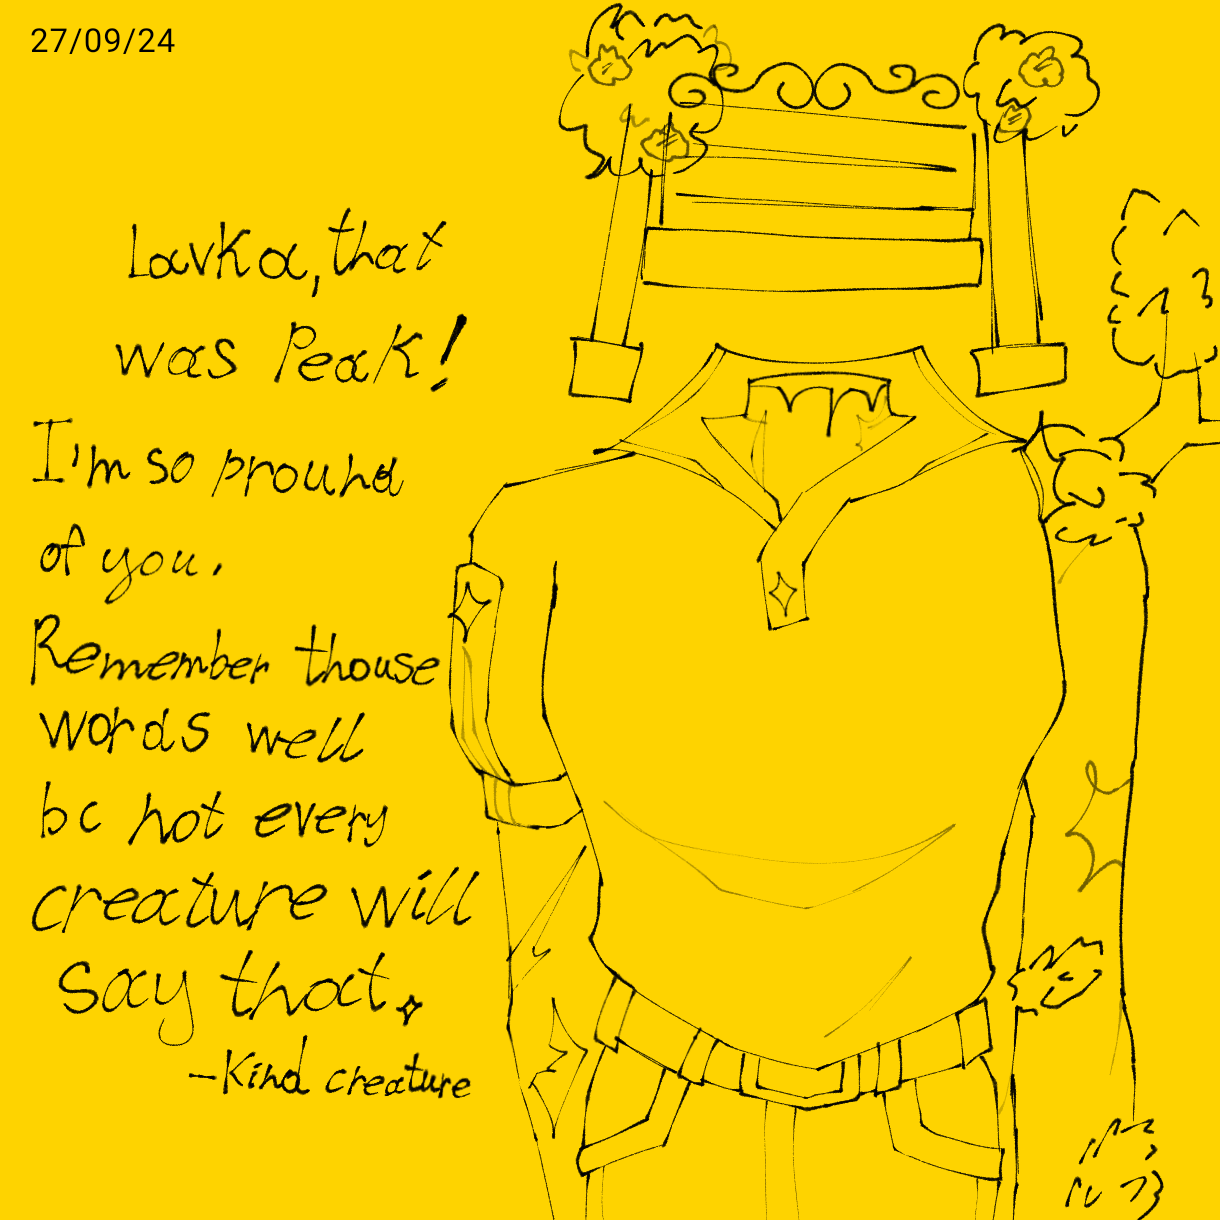 27/09/24
Lavka, that
was Peak!
I'm so pround
of you.
Remember thouse
words well
bc not every
creature will
say that.
-Kind creature